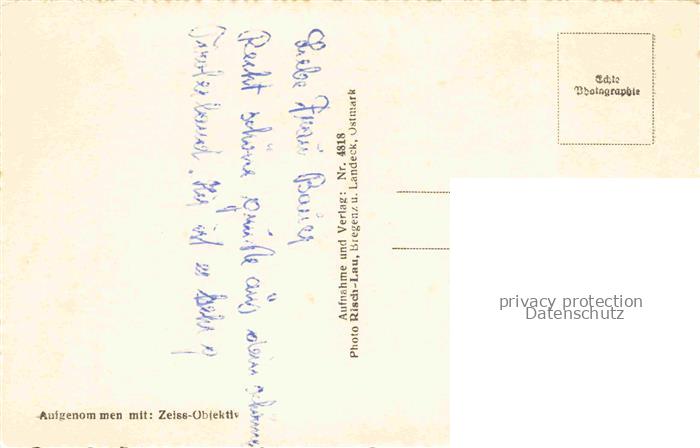 Liebe Frau Bauer
Recht schöne Grüße aus dem schönen
Hier ist es sehr
Aufnahme und Verlag: Nr. 4818
Photo Risch-Lau, Bregenz u. Landeck, Ostmark
Echte
Photographie
privacy protection
Datenschutz
Aufgenommen mit: Zeiss-Objektiv